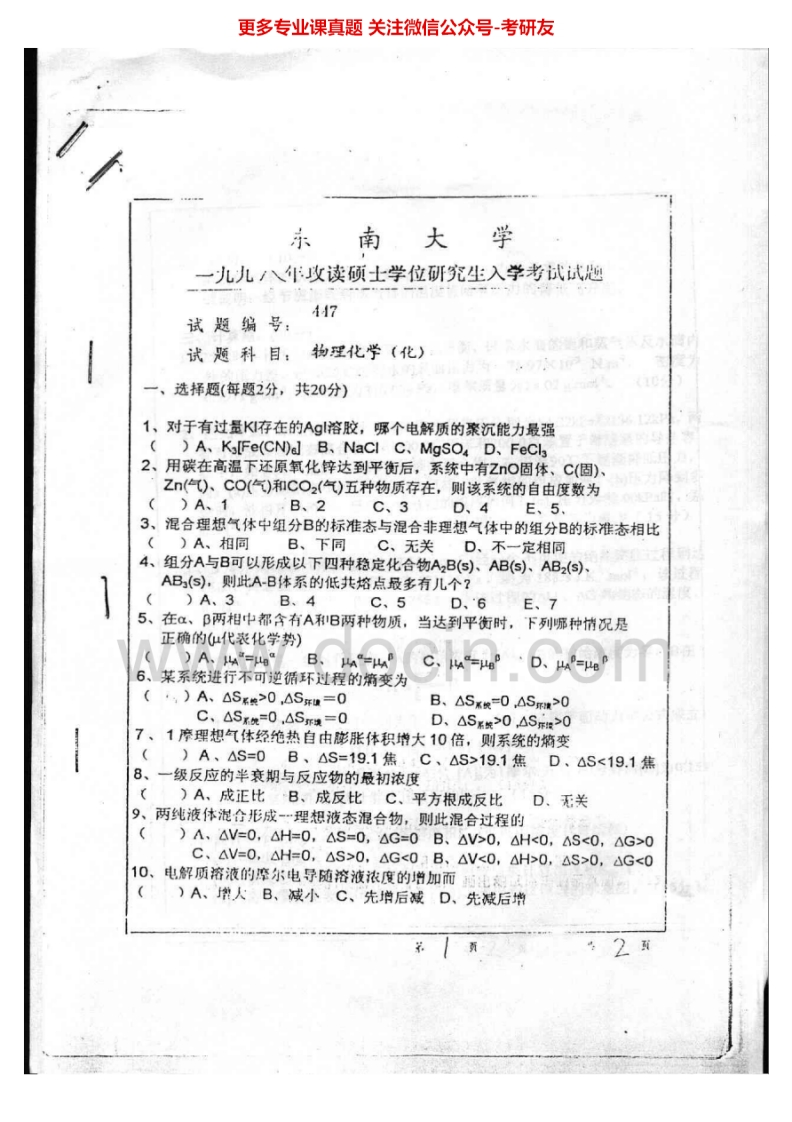 更多专业课真题 关注微信公众号-考研友
东 南 大 学
一九九八年攻读硕士学位研究生入学考试试题
试 题 编 号： 447
试 题 科 目： 物理化学（化）
一、选择题(每题2分，共20分)
1、对于有过量KI存在的AgI溶胶，哪个电解质的聚沉能力最强
( ) A、K₃[Fe(CN)₆] B、NaCl C、MgSO₄ D、FeCl₃
2、用碳在高温下还原氧化锌达到平衡后，系统中有ZnO固体、C(固)、
Zn(气)、CO(气)和CO₂(气)五种物质存在，则该系统的自由度数为
( ) A、1 B、2 C、3 D、4 E、5、
3、混合理想气体中组分B的标准态与混合非理想气体中的组分B的标准态相比
( ) A、相同 B、下同 C、无关 D、不一定相同
4、组分A与B可以形成以下四种稳定化合物A₂B(s)、AB(s)、AB₂(s)、
AB₃(s)，则此A-B体系的低共熔点最多有几个?
( ) A、3 B、4 C、5 D、6 E、7
5、在α、β两相中都含有A和B两种物质，当达到平衡时，下列哪种情况是
正确的(μ代表化学势)
( ) A、μA^α=μB^α B、μA^α=μA^β C、μA^α=μB^β D、μA^β=μB^β
www.docin.com
6、某系统进行不可逆循环过程的熵变为
( ) A、ΔS系统>0 ,ΔS环境=0 B、ΔS系统=0 ,ΔS环境>0
C、ΔS系统=0 ,ΔS环境=0 D、ΔS系统>0 ,ΔS环境>0
7、1摩理想气体经绝热自由膨胀体积增大10倍，则系统的熵变
( ) A、ΔS=0 B、ΔS=19.1焦 C、ΔS>19.1焦 D、ΔS<19.1焦
8、一级反应的半衰期与反应物的最初浓度
( ) A、成正比 B、成反比 C、平方根成反比 D、无关
9、两纯液体混合形成一理想液态混合物，则此混合过程的
( ) A、ΔV=0，ΔH=0，ΔS=0，ΔG=0 B、ΔV>0，ΔH<0，ΔS<0，ΔG>0
C、ΔV=0，ΔH=0，ΔS>0，ΔG<0 B、ΔV<0，ΔH>0，ΔS>0，ΔG<0
10、电解质溶液的摩尔电导随溶液浓度的增加而
( ) A、增大 B、减小 C、先增后减 D、先减后增
第 1 页 共 2 页